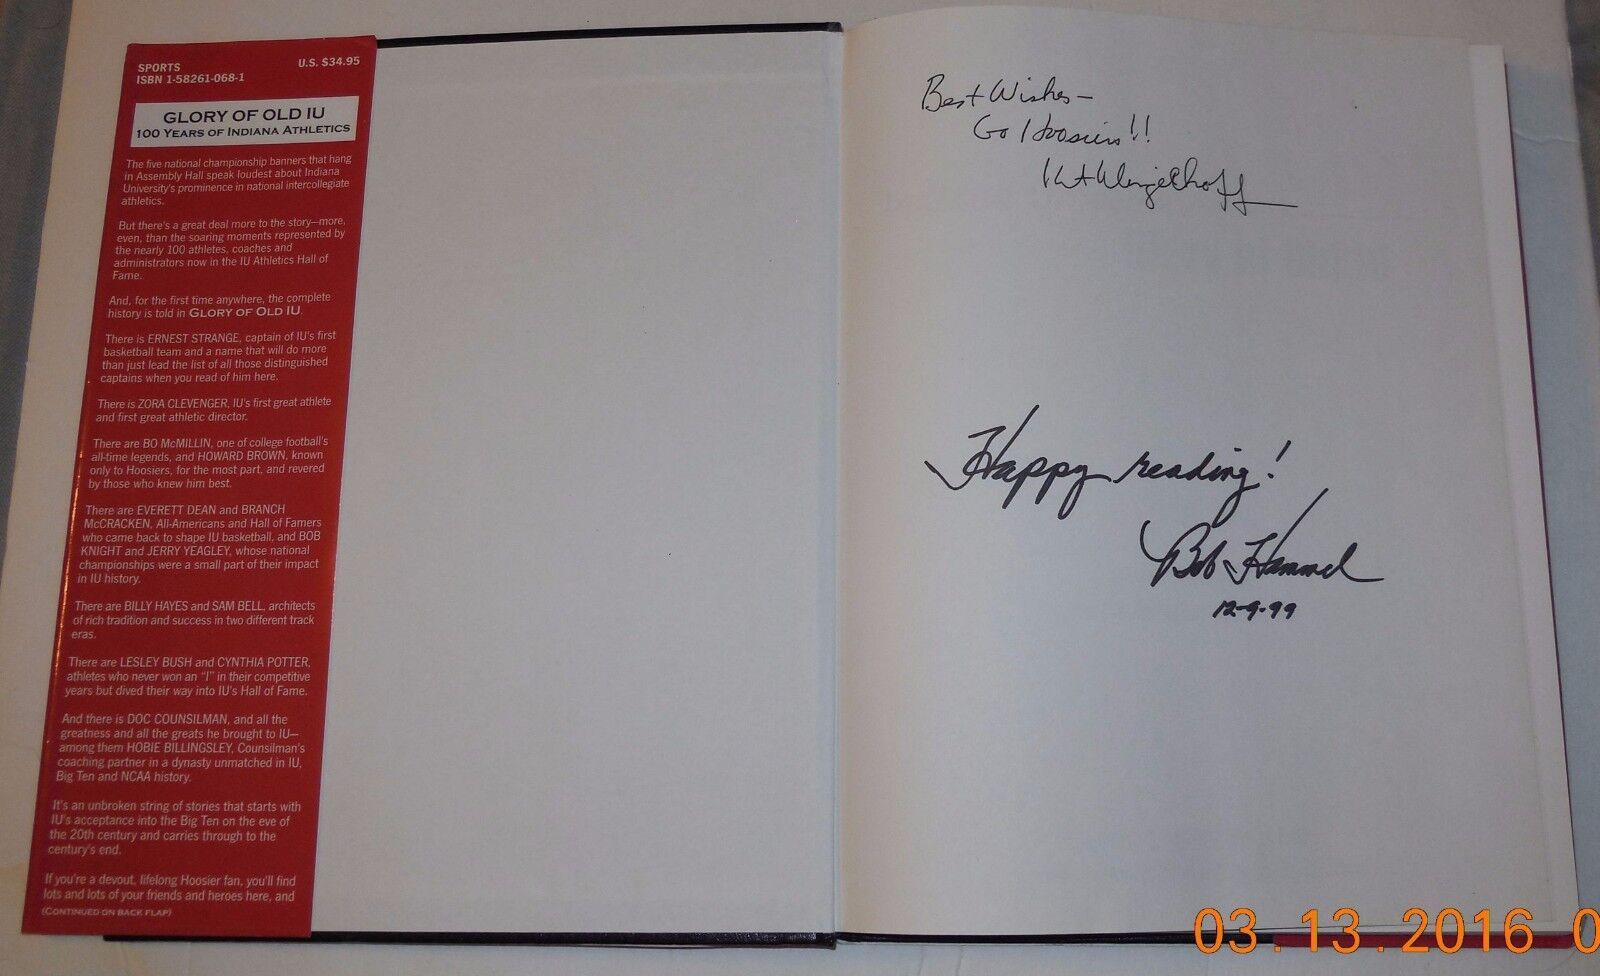 SPORTS
ISBN 1-58261-068-1
U.S. $34.95
GLORY OF OLD IU
100 YEARS OF INDIANA ATHLETICS
The five national championship banners that hang
in Assembly Hall speak loudest about Indiana
University's prominence in national intercollegiate
athletics.
But there's a great deal more to the story—more,
even, than the soaring moments represented by
the nearly 100 athletes, coaches and
administrators now in the IU Athletics Hall of
Fame.
And, for the first time anywhere, the complete
history is told in GLORY OF OLD IU.
There is ERNEST STRANGE, captain of IU's first
basketball team and a name that will do more
than just lead the list of all those distinguished
captains when you read of him here.
There is ZORA CLEVENGER, IU's first great athlete
and first great athletic director.
There are BO McMILLIN, one of college football's
all-time legends, and HOWARD BROWN, known
only to Hoosiers, for the most part, and revered
by those who knew him best.
There are EVERETT DEAN and BRANCH
McCRACKEN, All-Americans and Hall of Famers
who came back to shape IU basketball, and BOB
KNIGHT and JERRY YEAGLEY, whose national
championships were a small part of their impact
in IU history.
There are BILLY HAYES and SAM BELL, architects
of rich tradition and success in two different track
eras.
There are LESLEY BUSH and CYNTHIA POTTER,
athletes who never won an "I" in their competitive
years but dived their way into IU's Hall of Fame.
And there is DOC COUNSILMAN, and all the
greatness and all the greats he brought to IU—
among them HOBIE BILLINGSLEY, Counsilman's
coaching partner in a dynasty unmatched in IU,
Big Ten and NCAA history.
It's an unbroken string of stories that starts with
IU's acceptance into the Big Ten on the eve of
the 20th century and carries through to the
century's end.
If you're a devout, lifelong Hoosier fan, you'll find
lots and lots of your friends and heroes here, and
(CONTINUED ON BACK FLAP)
Best Wishes—
Go Hoosiers!!
Kit Klingelhoff
Happy reading!
Bob Hammel
12-9-99
03.13.2016 0